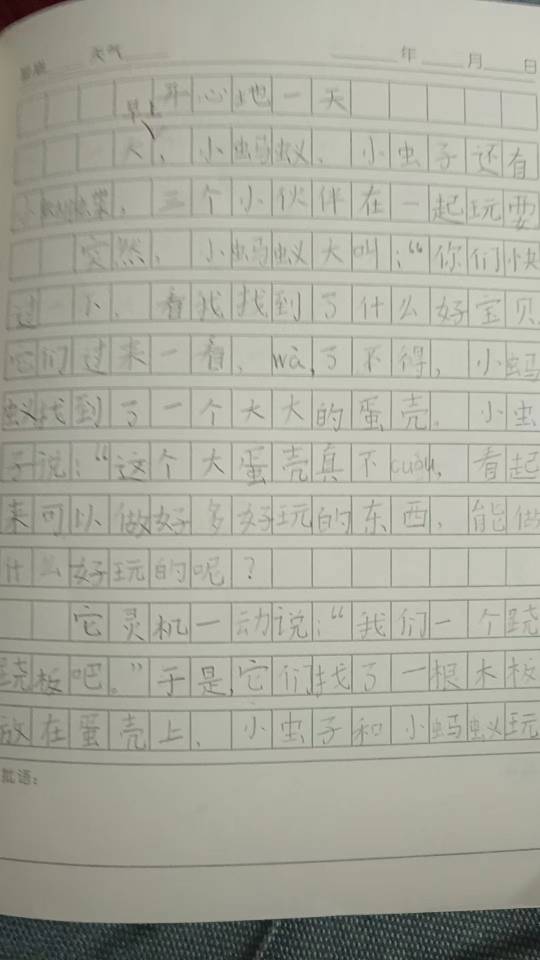 星期 天气 年 月 日
开心地一天
早上
一天,小蚂蚁、小虫子还有
小,三个小伙伴在一起玩耍
突然,小蚂蚁大叫:“你们快
过一下,看我找到了什么好宝贝
它们过来一看,wà,了不得,小蚂
蚁找到了一个大大的蛋壳。小虫
子说:“这个大蛋壳真不cuòu,看起
来可以做好多好玩的东西,能做
什么好玩的呢?
它灵机一动说:“我们一个跷
跷板吧。”于是,它们找了一根木板
放在蛋壳上,小虫子和小蚂蚁玩
批语: